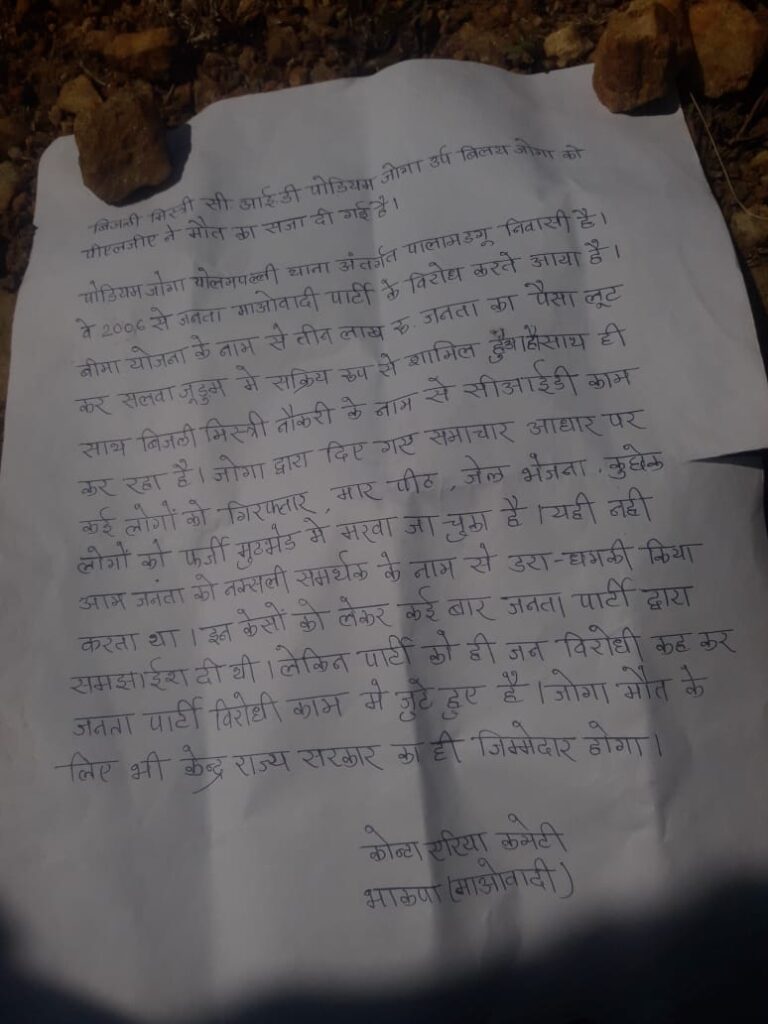 बिजली मिस्त्री सी आईडी पोडियम जोगा उर्प बिलय जोगा को
पीएलजीए ने मौत का सजा दी गई है।
पोडियम जोगा पोलमपल्ली थाना अंतर्गत पालामडगू निवासी है।
वे 2006 से जनता माओवादी पार्टी के विरोध करते आया है।
बीमा योजना के नाम से तीन लाख रू जनता का पैसा लूट
कर सलवा जूडुम मे सक्रिय रूप से शामिल हुआ है साथ ही
साथ बिजली मिस्त्री नौकरी के नाम से सीआईडी काम
कर रहा है। जोगा द्वारा दिए गए समाचार आधार पर
कई लोगों को गिरफ्तार, मार पीट, जेल भेजना, कुछेक
लोगों को फर्जी मुटमेड मे मरवा जा चुका है। यही नही
आम जनता को नक्सली समर्थक के नाम से डरा-धमकी किया
करता था। इन केसों को लेकर कई बार जनता पार्टी द्वारा
समझाईश दी थी। लेकिन पार्टी को ही जन विरोधी कह कर
जनता पार्टी विरोधी काम मे जुटे हुए है। जोगा मौत के
लिए भी केन्द्र राज्य सरकार का ही जिम्मेदार होगा।
कोन्टा एरिया कमेटी
भाकपा (माओवादी)